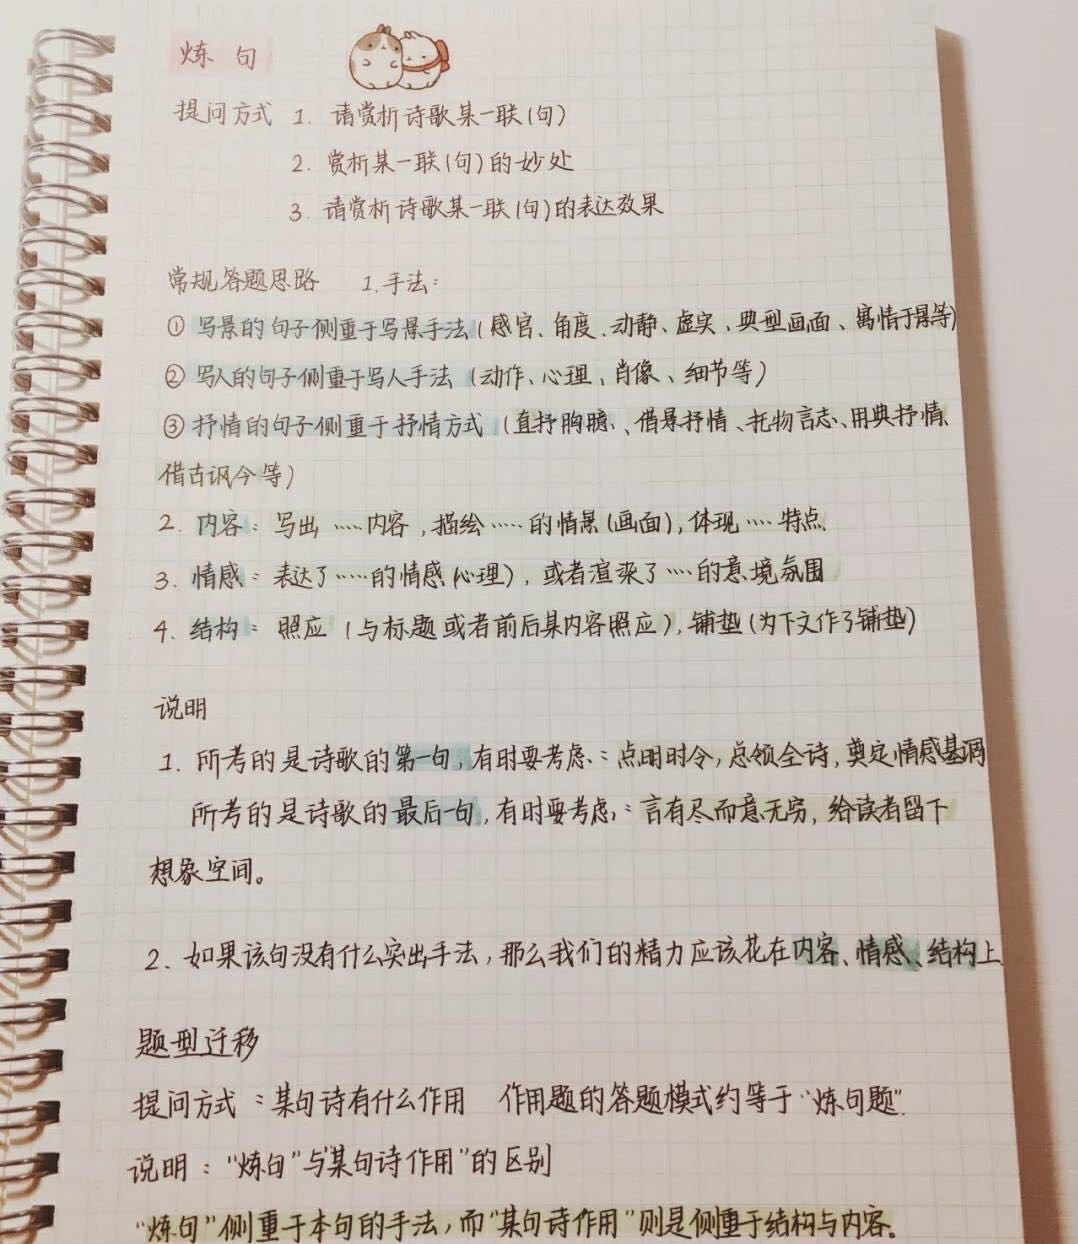 炼 句
提问方式 1. 请赏析诗歌某一联(句)
2. 赏析某一联(句)的妙处
3. 请赏析诗歌某一联(句)的表达效果
常规答题思路 1.手法:
① 写景的句子侧重于写景手法(感官、角度、动静、虚实、典型画面、寓情于景等)
② 写人的句子侧重于写人手法 (动作、心理、肖像、细节等)
③ 抒情的句子侧重于抒情方式 (直抒胸臆、借景抒情、托物言志、用典抒情、
借古讽今等)
2. 内容: 写出……内容,描绘……的情景(画面),体现……特点.
3. 情感: 表达了……的情感(心理), 或者渲染了……的意境氛围
4. 结构: 照应 (与标题或者前后某内容照应),铺垫(为下文作了铺垫)
说明
1. 所考的是诗歌的第一句,有时要考虑:点明时令,总领全诗,奠定情感基调
所考的是诗歌的最后一句,有时要考虑:言有尽而意无穷,给读者留下
想象空间。
2. 如果该句没有什么突出手法,那么我们的精力应该花在内容、情感、结构上.
题型迁移
提问方式:某句诗有什么作用 作用题的答题模式约等于“炼句题”.
说明:“炼句”与“某句诗作用”的区别
“炼句”侧重于本句的手法,而“某句诗作用”则是侧重于结构与内容。